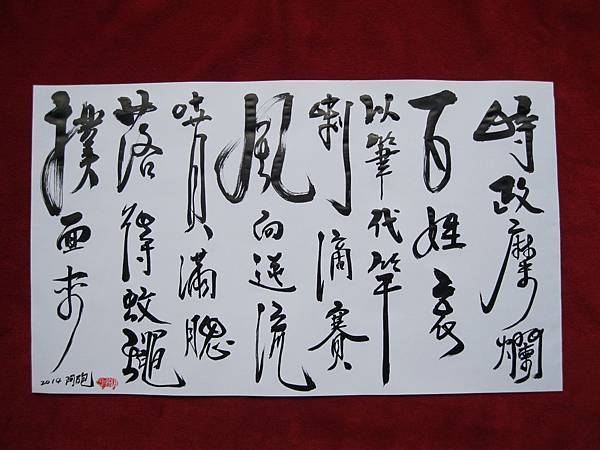 時政糜爛
百姓哀
以筆代竿
喇滴賽
風向逆流
噴滿腮
落得蚊蠅
撲面來
2014 阿砲